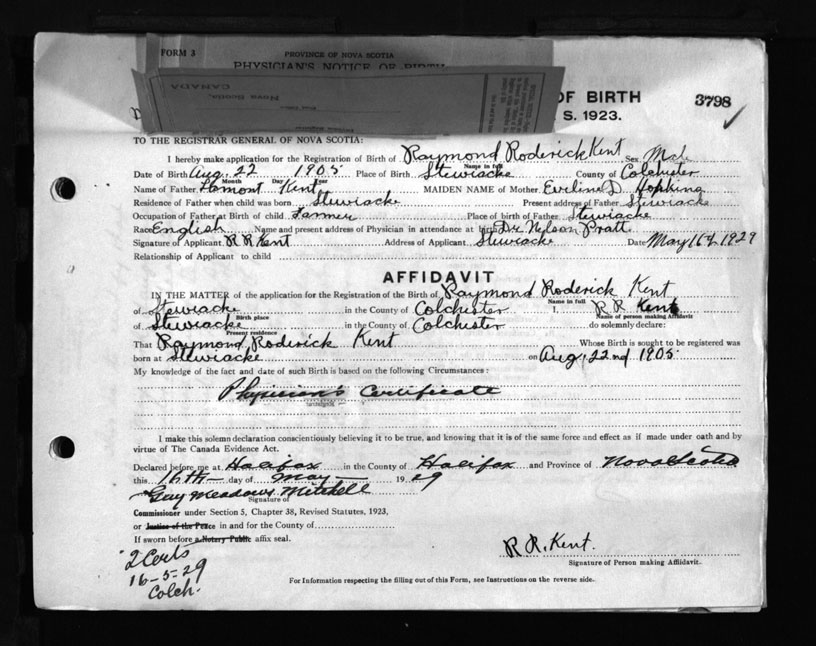 FORM 3
PROVINCE OF NOVA SCOTIA
PHYSICIAN'S NOTICE OF BIRTH
CANADA
Nova Scotia,
OF BIRTH
3798
S. 1923.
TO THE REGISTRAR GENERAL OF NOVA SCOTIA:
I hereby make application for the Registration of Birth of Raymond Roderick Kent Sex Male
Name in full
Date of Birth Aug. 22 1905 Place of Birth Stewiacke County of Colchester
Month Day Year
Name of Father Lamont Kent MAIDEN NAME of Mother Eveline D. Hopkins
Residence of Father when child was born Stewiacke Present address of Father Stewiacke
Occupation of Father at Birth of child Farmer Place of birth of Father Stewiacke
Race English Name and present address of Physician in attendance at birth Dr Nelson Pratt
Signature of Applicant R R Kent Address of Applicant Stewiacke Date May 16th 1929
Relationship of Applicant to child
AFFIDAVIT
IN THE MATTER of the application for the Registration of the Birth of Raymond Roderick Kent
Name in full
of Stewiacke in the County of Colchester I, R R Kent
Birth place Name of person making Affidavit
of Stewiacke in the County of Colchester do solemnly declare:
Present residence
That Raymond Roderick Kent Whose Birth is sought to be registered was
born at Stewiacke on Aug. 22nd 1905
My knowledge of the fact and date of such Birth is based on the following Circumstances:
Physician's Certificate
I make this solemn declaration conscientiously believing it to be true, and knowing that it is of the same force and effect as if made under oath and by
virtue of The Canada Evidence Act.
Declared before me at Halifax in the County of Halifax and Province of Nova Scotia
this 16th day of May 1929
Guy Meadows Mitchell
Signature of
Commissioner under Section 5, Chapter 38, Revised Statutes, 1923,
or Justice of the Peace in and for the County of
If sworn before a Notary Public affix seal.
R. R. Kent.
Signature of Person making Affidavit.
2 Certs
16-5-29
Colch.
For Information respecting the filling out of this Form, see Instructions on the reverse side.